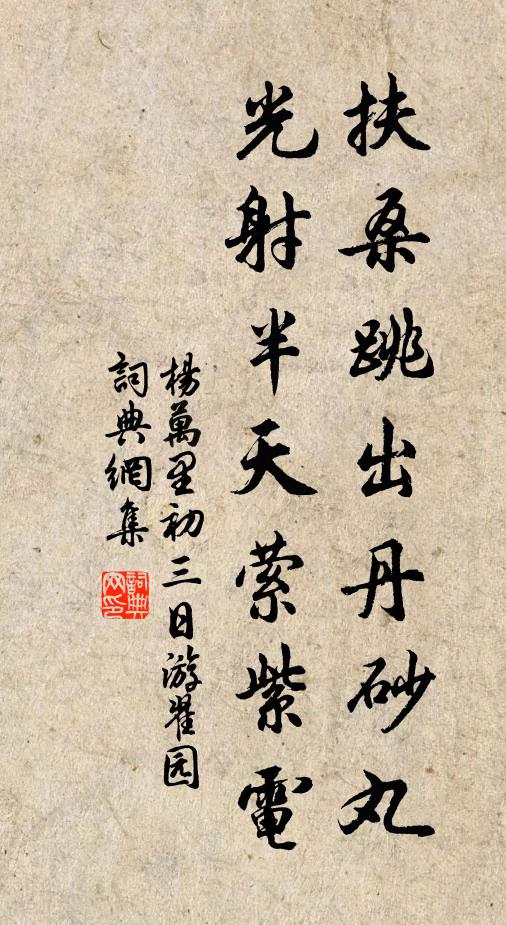 扶桑跳出丹砂丸
光射半天萦紫電
楊萬里初三日游瞿园
詞典網集
詞典
网印